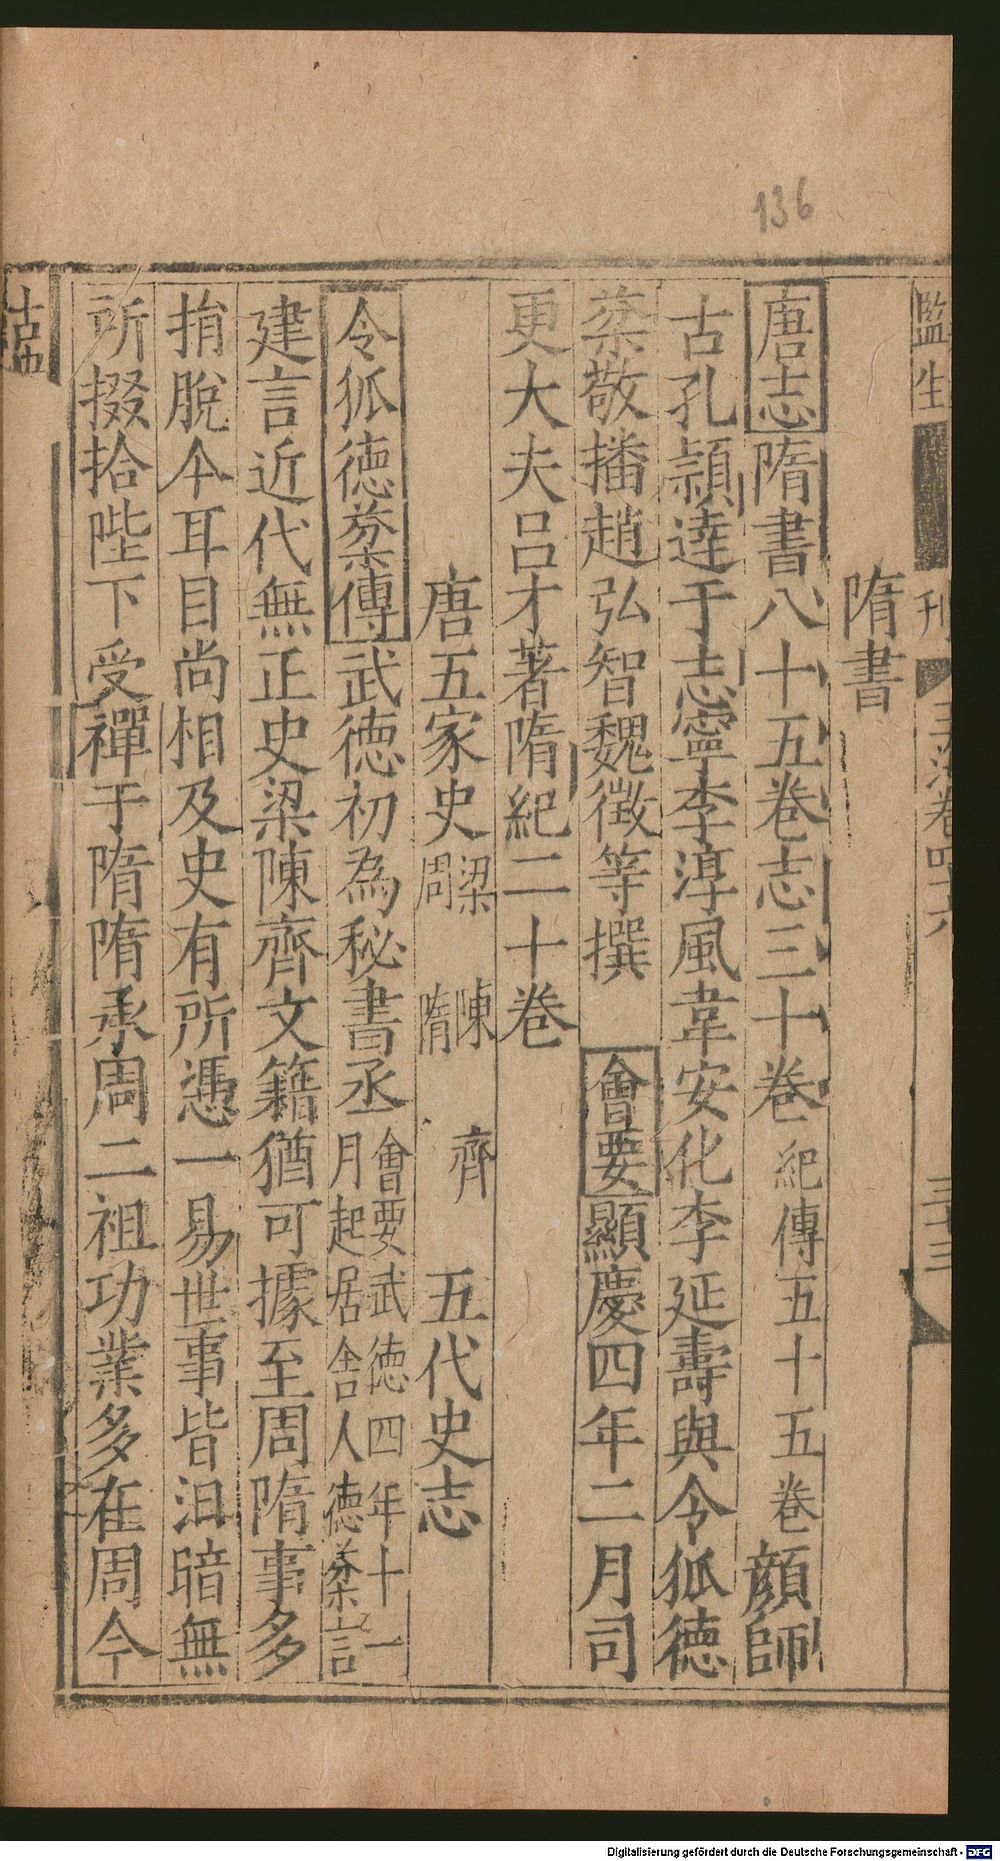 136
監生
刊
玉海卷四十六
三十三
隋書
唐志隋書八十五卷志三十卷紀傳五十五卷顔師
古孔頴達于志寧李淳風韋安化李延壽與令狐德
棻敬播趙弘智魏徵等撰 會要顯慶四年二月司
更大夫呂才著隋紀二十卷
唐五家史梁陳齊周隋 五代史志
令狐德棻傳武德初為秘書丞會要武德四年十一月起居舍人德棻言
建言近代無正史梁陳齊文籍猶可據至周隋事多
捐脫今耳目尚相及史有所憑一易世事皆汩暗無
所掇拾陛下受禪于隋隋承周二祖功業多在周今
Digitalisierung gefördert durch die Deutsche Forschungsgemeinschaft - DFG